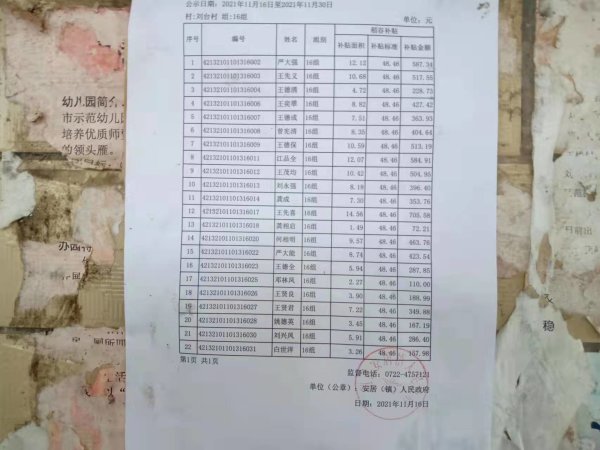 公示日期：2021年11月16日至2021年11月30日
村：刘台村 组：16组 单位：元
序号 编号 姓名 组别 稻谷补贴
补贴面积 补贴标准 补贴金额
1 42132101101316002 严大强 16组 12.12 48.46 587.34
2 42132101101316003 王先义 16组 10.68 48.46 517.55
3 42132101101316004 王德清 16组 4.72 48.46 228.73
4 42132101101316006 王奕翠 16组 8.82 48.46 427.42
5 42132101101316007 王德成 16组 7.51 48.46 363.93
6 42132101101316008 曾宪清 16组 8.35 48.46 404.64
7 42132101101316009 王德保 16组 10.59 48.46 513.19
8 42132101101316011 江品全 16组 12.07 48.46 584.91
9 42132101101316012 王茂均 16组 10.42 48.46 504.95
10 42132101101316013 刘永强 16组 8.18 48.46 396.40
11 42132101101316014 龚成 16组 7.30 48.46 353.76
12 42132101101316017 王先喜 16组 14.56 48.46 705.58
13 42132101101316018 龚相启 16组 1.49 48.46 72.21
14 42132101101316020 何相明 16组 9.57 48.46 463.76
15 42132101101316022 严大能 16组 8.74 48.46 423.54
16 42132101101316023 王德全 16组 5.94 48.46 287.85
17 42132101101316025 邓林凤 16组 2.27 48.46 110.00
18 42132101101316026 王贤良 16组 3.90 48.46 188.99
19 42132101101316027 王贤君 16组 7.22 48.46 349.88
20 42132101101316028 姚德英 16组 3.45 48.46 167.19
21 42132101101316030 刘兴凤 16组 5.91 48.46 286.40
22 42132101101316031 白世洋 16组 3.26 48.46 157.98
第1页 共1页
监督电话：0722-4757121
单位（公章）：安居（镇）人民政府
日期：2021年11月16日
幼儿园简介
市示范幼儿园
培养优质师
的领头雁。
稳